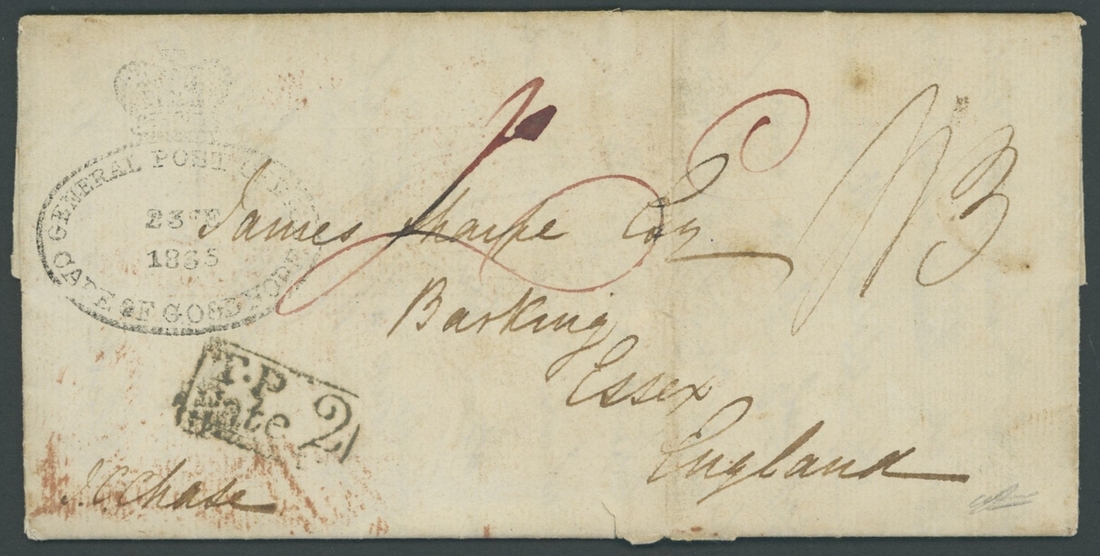 GENERAL POST OFFICE
23
1835
CAPE OF GOOD HOPE
James Sharpe Esq
Barking
Essex
England
T.P
Rate 2
J.C. Chase